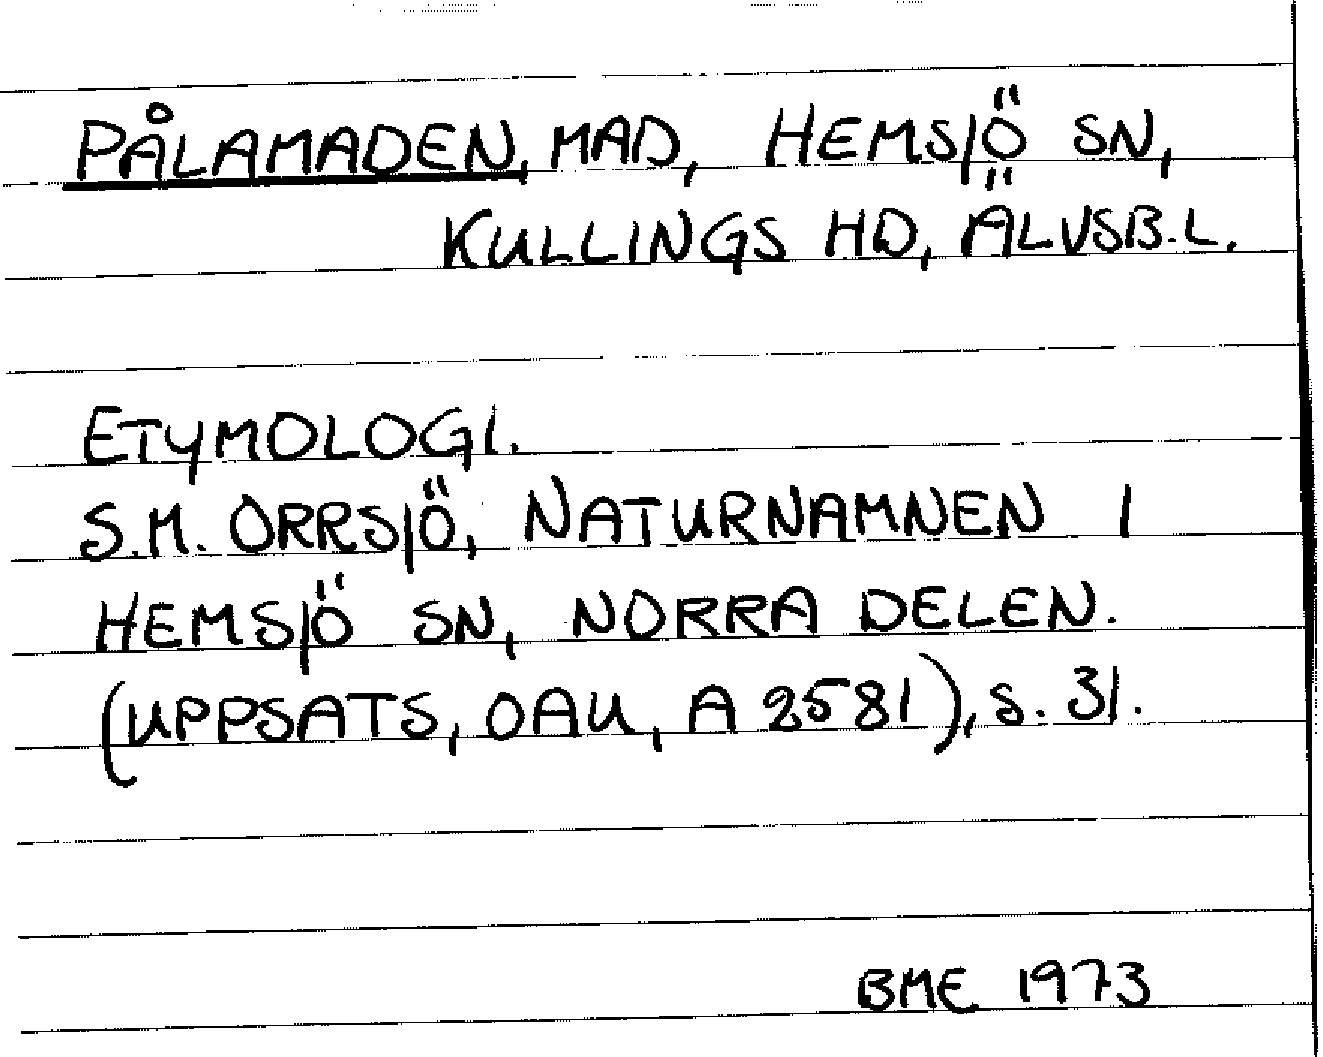 PÅLAMADEN, MAD, HEMSJÖ SN,
KULLINGS HD, ÄLVSB.L.
ETYMOLOGI.
S.M. ORRSJÖ, NATURNAMNEN I
HEMSJÖ SN, NORRA DELEN.
(UPPSATS, OAU, A 2581), S. 31.
BME 1973